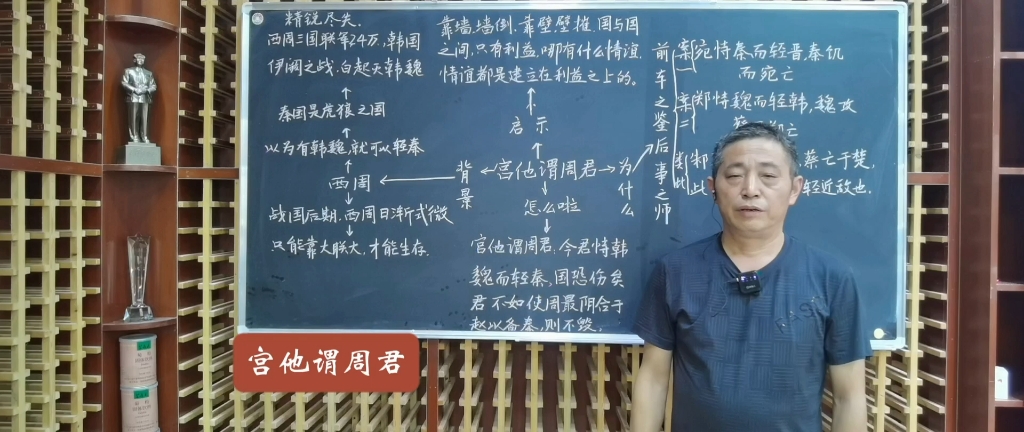 精锐尽失.
西周三国联军24万,韩国
伊阙之战,白起灭韩魏
秦国是虎狼之国
以为有韩魏,就可以轻秦
西周
战国后期,西周日渐式微
只能靠大联大,才能生存.
背景
靠墙,墙倒,靠壁,壁摧,国与国
之间,只有利益,哪有什么情谊,
情谊都是建立在利益之上的。
启示
宫他谓周君
怎么啦
宫他谓周君,今君恃韩
魏而轻秦,国恐伤矣
君不如使周最阴合于
赵以备秦,则不毁.
为什么
前车之鉴后事之师
案一
宛恃秦而轻晋,秦饥
而宛亡
案二
郑恃魏而轻韩,魏攻
亡
邾
蔡亡于楚.
此
轻近敌也.
宫他谓周君